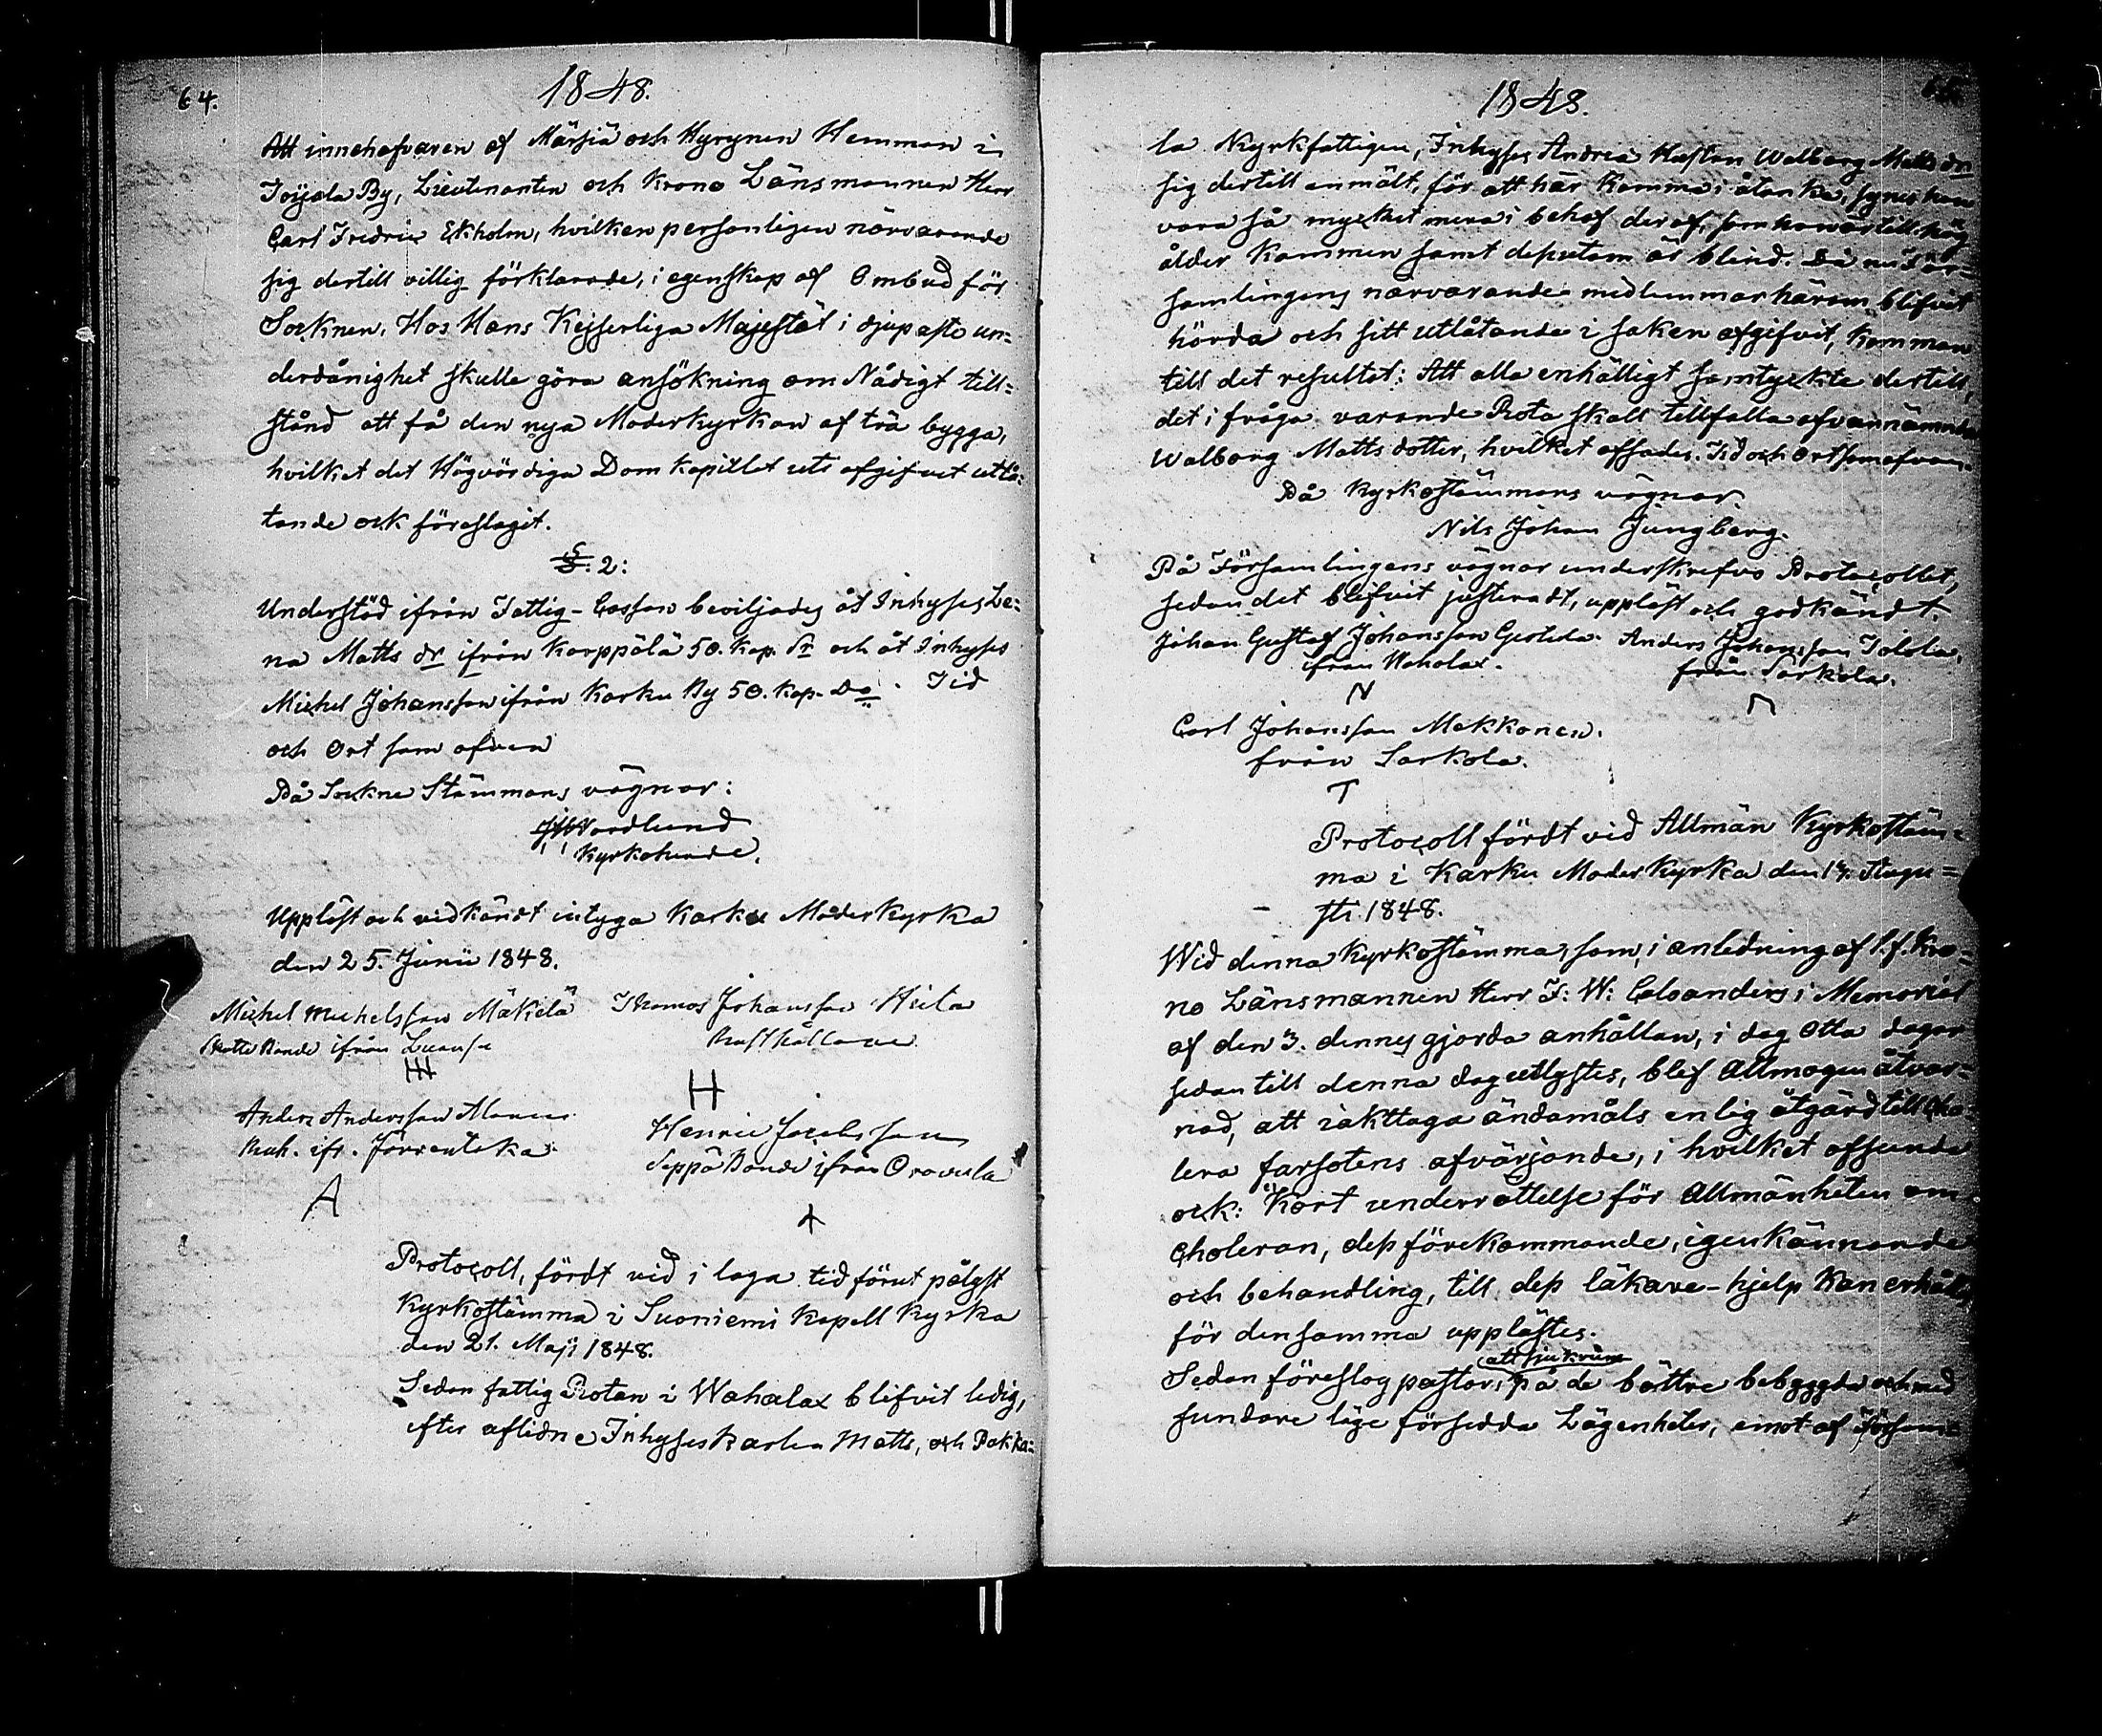 64.
1848.
Att innehafvaren af Märsiä och Hyrynen Hemman i
Joijala By, Lieutenanten och Krono Länsmannen Herr
Carl Fredric Ekholm, hvilken personligen närvarande
sig dertill villig förklarade, i egenskap af Ombud för
Socknen, Hos Hans Kejserliga Majestät i djupaste un-
derdånighet skulle göra ansökning om Nådigt till-
stånd att få den nya Moderkyrkan af trä bygga,
hvilket det Högvördiga Dom kapitlet uti afgifvet utlå-
tande ock föreslagit.
§. 2:
Understöd ifrån Fattig-Cassan beviljades åt Inhyses Le-
na Matts dr ifrån Karppälä 50. Kop. Sr och åt Inhyses
Michel Johansson ifrån Karku By 50. Kop. Do. Tid
och Ort som ofvan
På Sockne Stämmans vägnar:
Nordlund
Kyrkoherde.
Uppläst och vidkändt intyga Karku Moderkyrka
den 25. Junii 1848.
Michel Michelsson Mäkelä Thomas Johansson Hiita
Bonde ifrån Rusthållare
HH
H
Anders Andersson
ifr. Järventaka
Henric Jacobsson
Seppä Bonde ifrån Oravula
A
Protocoll, fördt vid i laga tid förut pålyst
Kyrkostämma i Suoniemi Kapell Kyrka
den 21. Maji 1848.
Sedan fattig Rotan i Wahalax blifvit ledig,
efter aflidne Inhyses karlen Matts, och Pakka-
1848.
la Kyrkfattigen, Inhyses Andrea Hustan Walborg Matts dr
sig dertill anmält, för att här komma i åtanke, synes hon
vara så mycket mera i behof deraf, som hon är till hög
ålder kommen samt dessutom är blind. Då nu För-
samlingens närvarande medlemmar härom blifvit
hörda och sitt utlåtande i saken afgifvit, kom man
till det resultat: Att alla enhälligt samtyckte dertill,
det i fråga varande Rota skall tillfalla ofvannämnda
Walborg Matts dotter, hvilket afsades. Tid och Ort som ofvan.
På Kyrkostämmans vägnar
Nils Johan Jungberg.
På Församlingens vägnar underskrefvo Protocollet,
sedan det blifvit justeradt, uppläst och godkändt.
Johan Gustaf Johansson Anders Johansson
ifrån Wahalax. från Sarkola.
N
Carl Johansson Makkonen.
från Sarkola.
T
Protocoll fördt vid Allmän Kyrkostäm-
ma i Karku Moderkyrka den Augu-
sti 1848.
Wid denna Kyrkostämma, som, i anledning af t. f. Kro-
no Länsmannen Herr F: W: Caloanders i Memorial
af den 3. dennes gjorda anhållan, i dag Otta dagar
sedan till denna dag utlystes, blef Allmogen åtvar-
nad, att iakttaga ändamåls enlig åtgärd till Cho-
lera farsotens afvärjande, i hvilket afseende
ock: Kort underrättelse för Allmänheten om
Choleran, dess förekommande, igenkännande
och behandling, till dess läkare-hjelp kan erhållas
för densamma upplästes.
att sjukrum
Sedan föreslog pastor, på de bättre bebyggda och med
sundare läge försedda Lägenheter, emot af Försam-